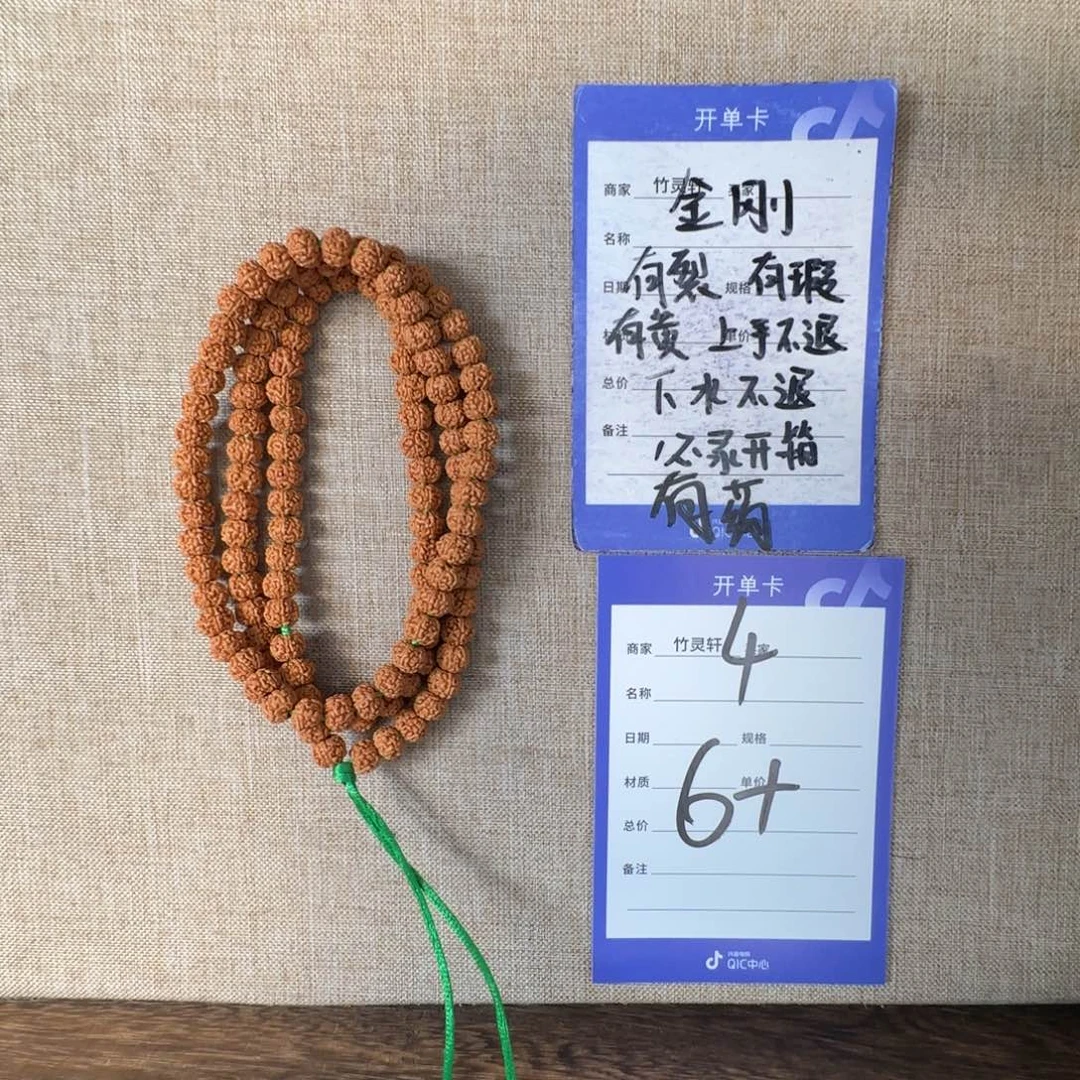 开单卡
商家 竹灵轩
金刚
名称
日期 有裂 规格 有瑕
有黄 单价 上手不退
总价 下水不退
备注 必录开箱
有药
开单卡
商家 竹灵轩 4 家
名称
日期 规格
材质 单价
6+
总价
备注
抖音电商
QIC中心